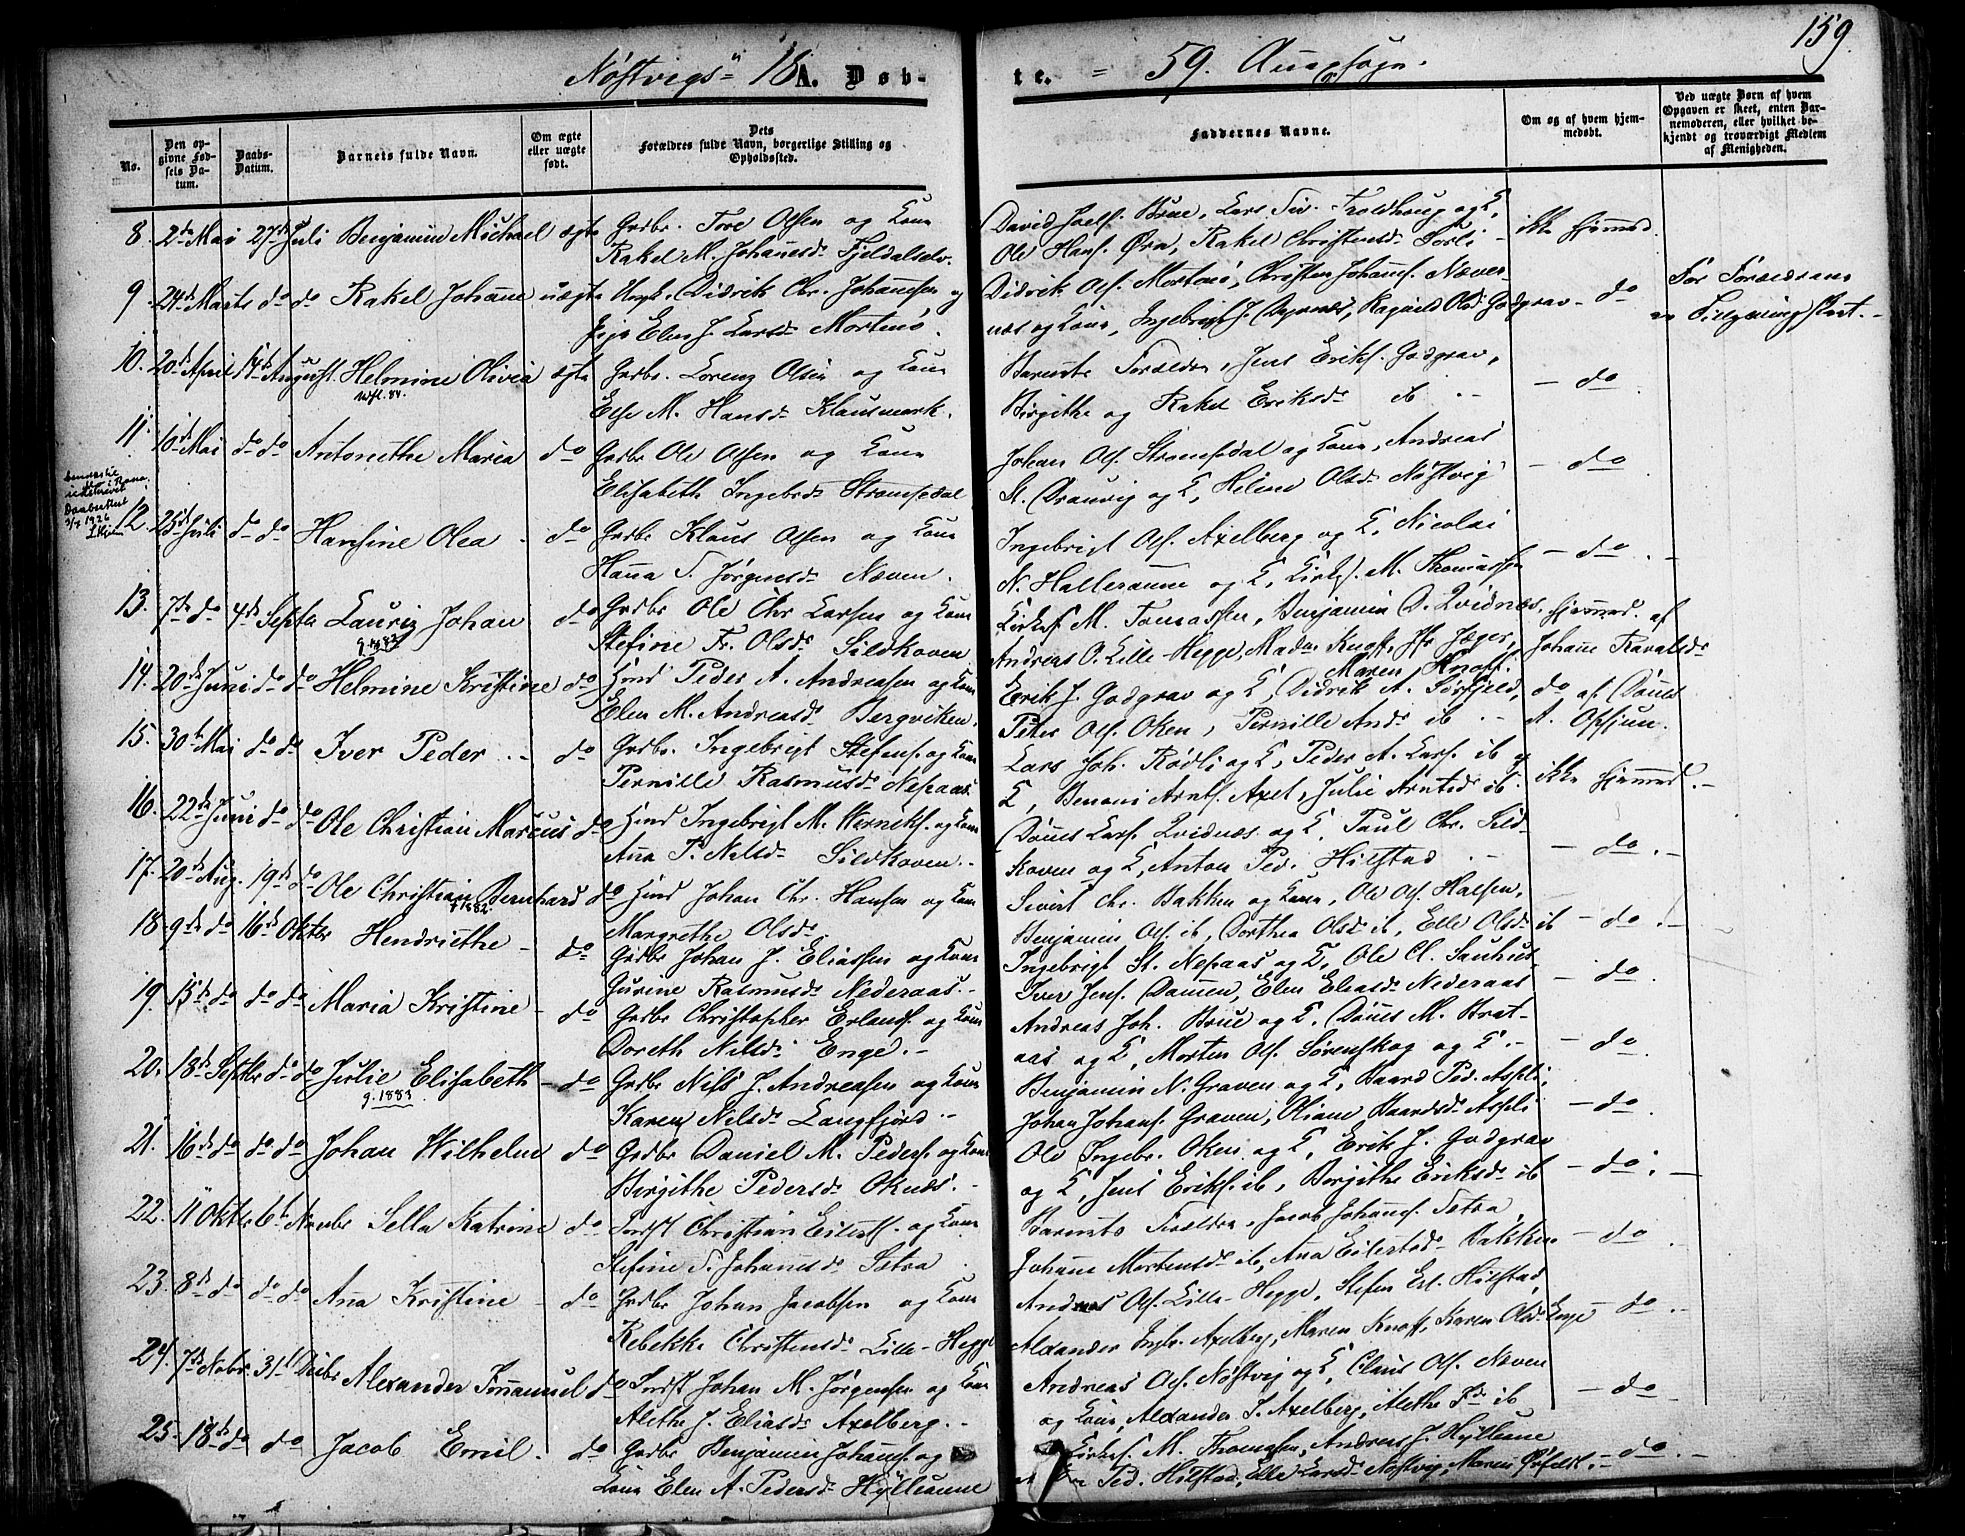 159
Nøstvigs- 18 A. Døb-
te. = 59. Anexsogn.
No.
Den opgivne Fødsels Datum.
Daabs-Datum.
Barnets fulde Navn.
Om ægte eller uægte født.
Dets Forældres fulde Navn, borgerlige Stilling og Opholdssted.
Faddernes Navne.
Om og af hvem hjemmedøbt.
Ved uægte Børn af hvem Opgaven er skeet, enten Barnemoderen, eller hvilket bekjendt og troværdigt Medlem af Menigheden.
8. 2de Mai 27de Juli Benjamin Michael ægte Grdbr. Tore Olsen og Kone
Rakel M. Johansdr Fjeldalselv.
David Joels. Brue, Lars Siv. Troldhaug og K,
Ole Hans. Øra, Rakel Christensdr Sørli - ikke hjemmed.
9. 24de Marts do do Rakel Johanne uægte Ungk. Didrik Chr. Johansen og
Pige Elen J. Larsdr Mortenø.
Didrik Ols. Mortenø, Christen Johans. Næver-
næs og Kone, Ingebrigt J. Dyrnæs, Ragnild Olsdr Godgrav - do
10. 20de April 14de August Helmine Olivia ægte Grdbr. Lorenz Olsen og Kone
Else M. Hansdr Klausmark.
Barnets Forældre, Jens Eriks. Godgrav,
Birgithe og Rakel Eriksdr ib - do
11. 10de Mai do do Antonethe Maria do Grdbr Ole Olsen og Kone
Elisabeth Ingebrdr Strømsdal
Johan Ols. Strømsdal og Kone, Andreas
St. Dranvig og K, Helene Olsdr Nøstvig - do
12. 25de Juli do do Hansine Olea do Grdbr Klaus Olsen og Kone
Hanna S. Jørgensdr Næven.
Ingebrigt Ols. Axelberg og K, Nicolai
N. Halleraune og K, Kirkes. M. Thomassen - do
13. 7de do 4de Septbr Lauriz Johan do Grdbr Ole Chr Larsen og Kone
Stefine Fr. Olsdr Sildhoven
Kirkes M. Tomassen, Benjamin D. Qvidnæs,
Andreas O. Lille-Hegge, Madm Knoff, Jfr Jæger, Maren Knoff.
hjemmed. af
14. 20de Juni do do Helmine Kristine do Hmd Peder A. Andreasen og Kone
Elen M. Andreasdr Bergviken.
Erik J. Godgrav og K, Didrik A. Sørfjeld,
Peter Ols. Oken, Pernille Andr ib - do af
15. 30te Mai do do Iver Peder do Grdbr. Ingebrigt Stefens. og Kone
Pernille Rasmusdr Nepaas
Lars Joh. Rødli og K, Peder A. Lars. ib og
K, Benoni Arnts. Axel, Julie Arntsdr ib ikke hjemmed.
16. 22de Juni do do Ole Christian Marcus do Hmd Ingebrigt M. Werniks. og Kone
Ana P. Nilsdr Sildhoven.
Dønes Lars. Qvidnæs og K, Paul Chr. Sild-
hoven og K, Anton Ped. Hilstad - do
17. 20de Aug. 19de do Ole Christian Bernhard do Hmd Johan Chr. Hansen og Kone
Margrethe Olsdr
Sivert Chr. Bakken og Kone, Ole Ols. Halsen,
Benjamin Ols. ib, Dorthea Olsdr ib, Elle Olsdr ib - do
18. 9de do 16de Oktbr Hendriethe - do Grdbr Johan J. Eliassen og Kone
Gurine Rasmusdr Nederaas.
Ingebrigt St. Nepaas og K, Ole Cl. Sauhus-
Iver Jens. Dannen, Elen Eliasdr Nederaas - do
19. 15de do do do Maria Kristine - do Grdbr Christopher Erlands. og Kone
Doreth Nilsdr Enge.
Andreas Joh. Brue og K, Dønes M. Brat-
aas og K, Morten Ols. Sørenskog og K. - do
20. 18de Septbr do do Julie Elisabeth - do Grdbr Nils J. Andreasen og Kone
g. 1883
Karen Nilsdr Langfjord.
Benjamin N. Graven og K, Baard Ped. Aspli,
Johan Johans. Graven, Oliane Baardsdr Aspli - do
21. 16de do do do Johan Wilhelm do Grdbr Daniel M. Peders. og Kone
Birgithe Pedersdr Oknæs.
Ole Ingebr. Oken og K, Erik J. Godgrav
og K, Jens Eriks. ib, Birgithe Eriksdr ib - do
22. 11 Oktbr 6te Novbr Sella Katrine do Indst Christian Eilerts. og Kone
Stefine S. Johansdr Setra
Barnets Forældre, Jacob Johans. Setra,
Johanne Mortensdr ib, Ana Eilertsdr Bakken - do
23. 8de do do do Ana Kristine - do Grdbr Johan Jacobsen og Kone
Rebekke Christensdr Lille-Hegge
Andreas Ols. Lille-Hegge, Stefen Erl. Hilstad,
Alexander Ingbr. Axelberg, Maren Knoff, Karen Olsdr Enge - do
24. 7de Novbr. 31te Decbr Alexander Imanuel do Indst Johan M. Jørgensen og Kone
Alethe J. Eliasdr Axelberg.
Andreas Ols. Nøstvig og K, Claus Ols. Næven
og Kone, Alexander S. Axelberg, Alethe ib - do
25. 18de do do Jacob Emil. do Grdbr Benjamin Johans. og
Kone Elen A. Pedersdr Hylleaune
Kirkes. M. Thomassen, Andreas J. Hylleaune
Ped. Hilstad, Elle Larsdr Nøstvig, Maren - do